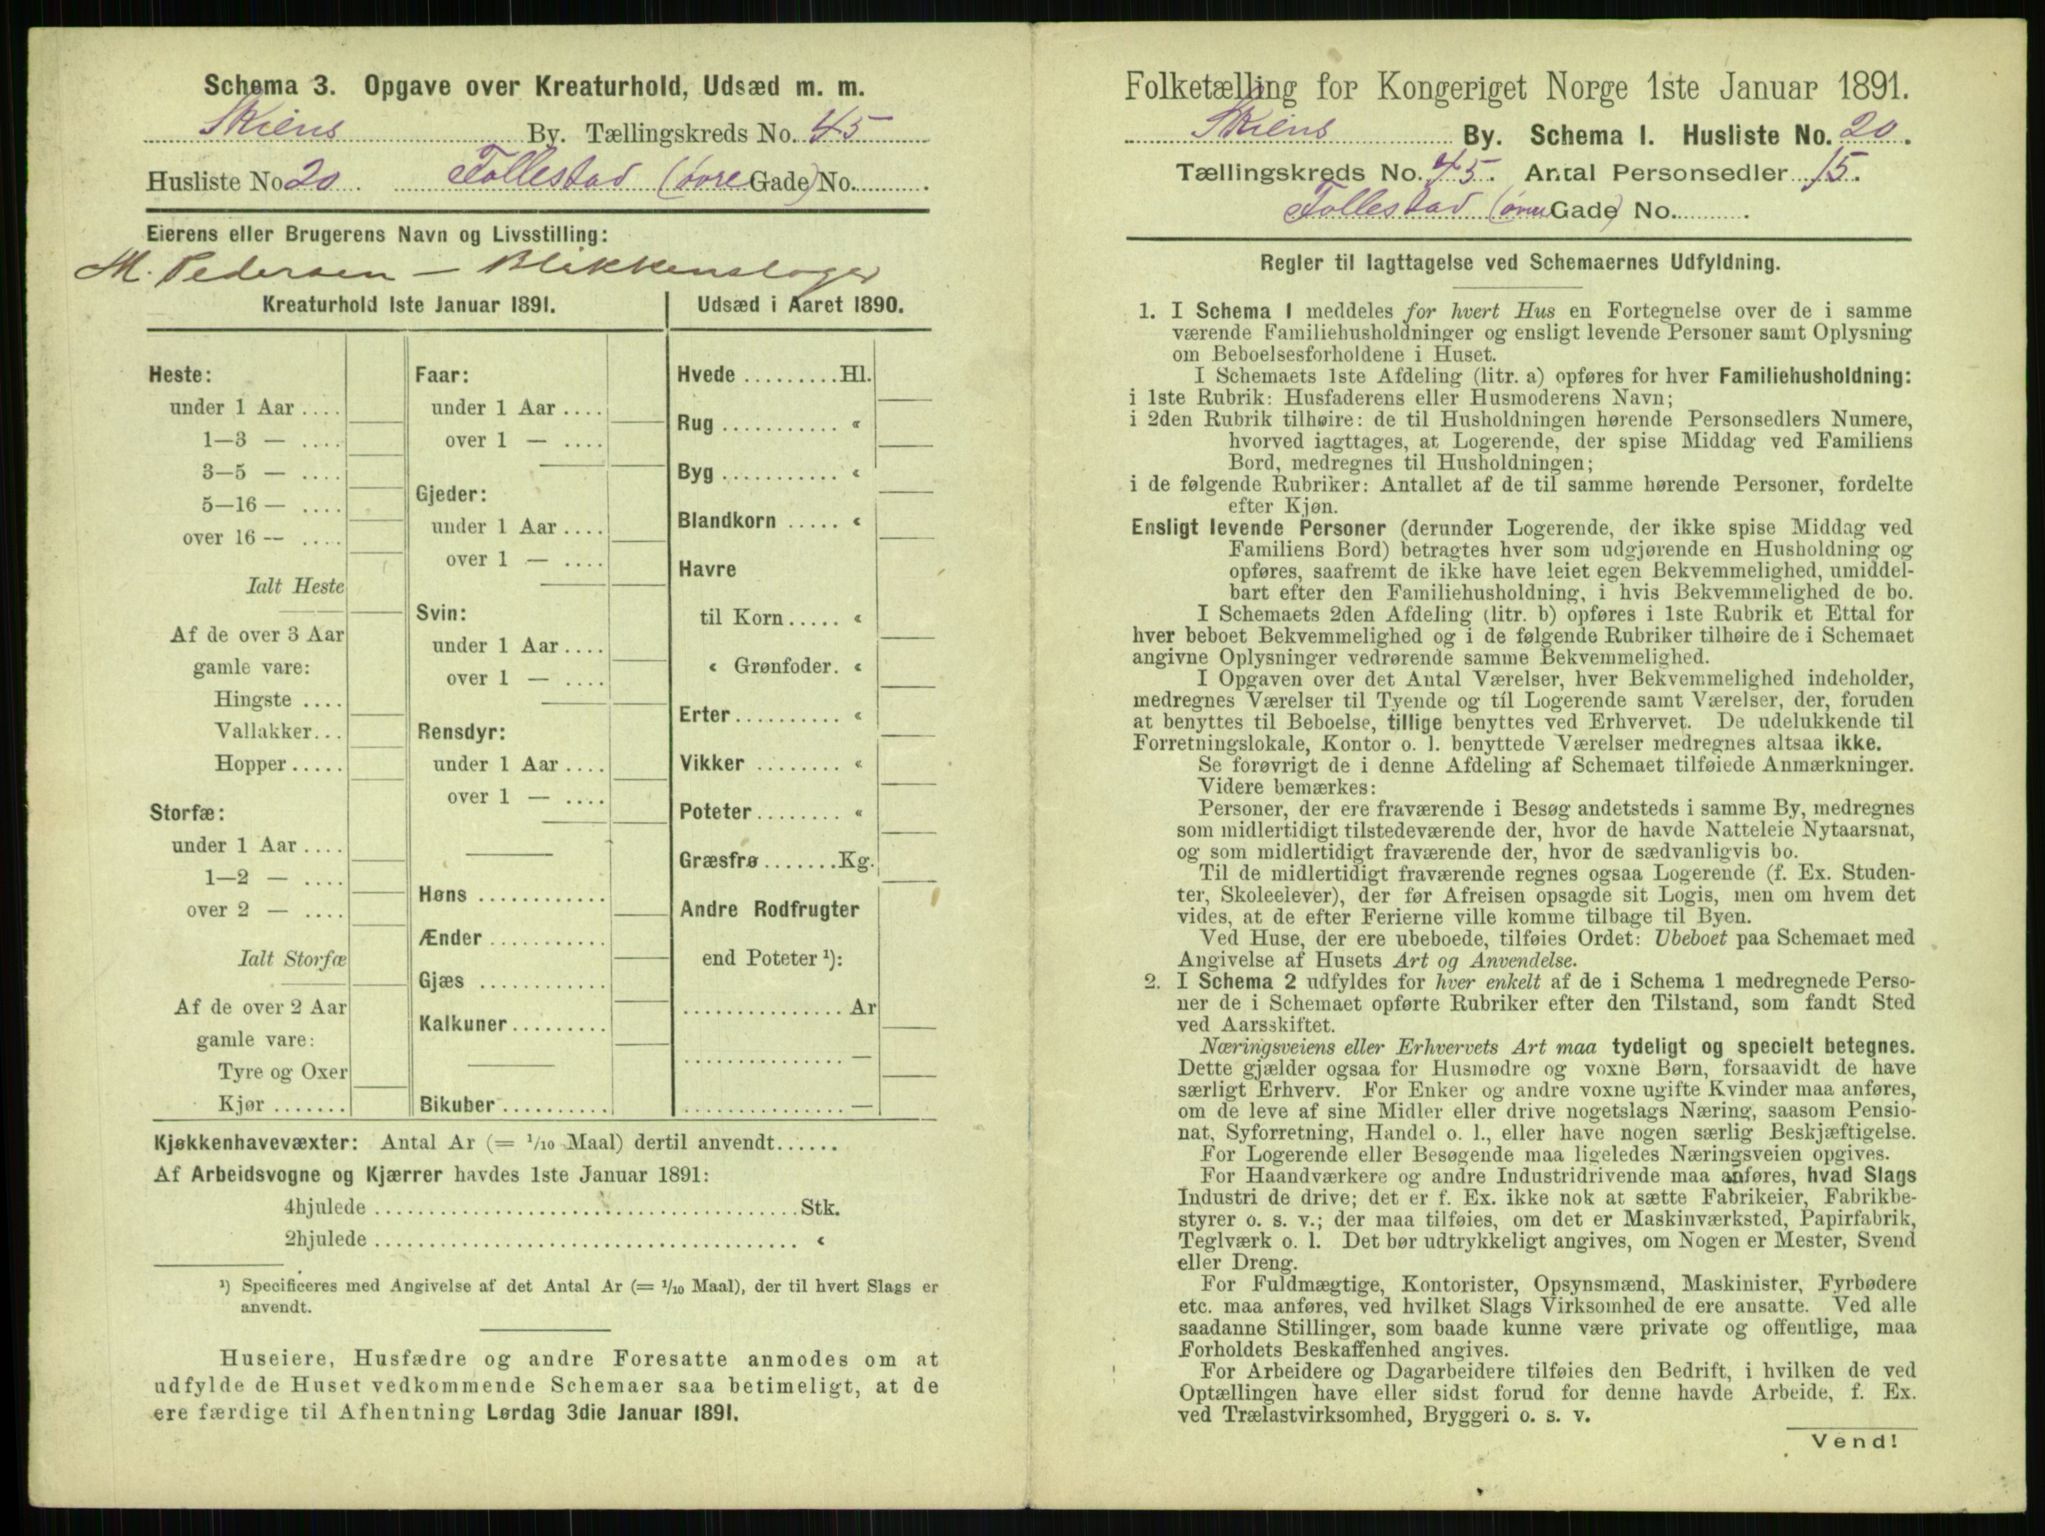 Schema 3. Opgave over Kreaturhold, Udsæd m. m.
Skiens By. Tællingskreds No. 45
Husliste No 20 Follestad (øvre Gade) No.
Eierens eller Brugerens Navn og Livsstilling:
M. Pedersen – Blikkenslager
Kreaturhold 1ste Januar 1891.
Heste:
under 1 Aar ....
1—3 — ....
3—5 — ....
5—16 — ....
over 16 -- ....
Ialt Heste
Af de over 3 Aar
gamle vare:
Hingste ....
Vallakker...
Hopper.....
Storfæ:
under 1 Aar ....
1—2 — ....
over 2 — ....
Ialt Storfæ
Af de over 2 Aar
gamle vare:
Tyre og Oxer
Kjør .......
Faar:
under 1 Aar ....
over 1 — ....
Gjeder:
under 1 Aar ....
over 1 — ....
Svin:
under 1 Aar ....
over 1 — ....
Rensdyr:
under 1 Aar ....
over 1 — ....
Høns ............
Ænder ...........
Gjæs ............
Kalkuner.........
Bikuber ..........
Udsæd i Aaret 1890.
Hvede .........Hl.
Rug ........... «
Byg ........... «
Blandkorn ..... «
Havre
til Korn..... «
« Grønfoder. «
Erter.......... «
Vikker ........ «
Poteter........ «
Græsfrø .......Kg.
Andre Rodfrugter
end Poteter ¹):
............... Ar
............... —
............... —
Kjøkkenhavevæxter: Antal Ar (= 1/10 Maal) dertil anvendt......
Af Arbeidsvogne og Kjærrer havdes 1ste Januar 1891:
4hjulede ......................................Stk.
2hjulede ...................................... «
¹) Specificeres med Angivelse af det Antal Ar (= 1/10 Maal), der til hvert Slags er
anvendt.
Huseiere, Husfædre og andre Foresatte anmodes om at
udfylde de Huset vedkommende Schemaer saa betimeligt, at de
ere færdige til Afhentning Lørdag 3die Januar 1891.
Folketælling for Kongeriget Norge 1ste Januar 1891.
Skiens By. Schema I. Husliste No. 20.
Tællingskreds No. 45. Antal Personsedler 15.
Follestad (øvre Gade) No.
Regler til Iagttagelse ved Schemaernes Udfyldning.
1. I Schema 1 meddeles for hvert Hus en Fortegnelse over de i samme
værende Familiehusholdninger og ensligt levende Personer samt Oplysning
om Beboelsesforholdene i Huset.
I Schemaets 1ste Afdeling (litr. a) opføres for hver Familiehusholdning:
i 1ste Rubrik: Husfaderens eller Husmoderens Navn;
i 2den Rubrik tilhøire: de til Husholdningen hørende Personsedlers Numere,
hvorved iagttages, at Logerende, der spise Middag ved Familiens
Bord, medregnes til Husholdningen;
i de følgende Rubriker: Antallet af de til samme hørende Personer, fordelte
efter Kjøn.
Ensligt levende Personer (derunder Logerende, der ikke spise Middag ved
Familiens Bord) betragtes hver som udgjørende en Husholdning og
opføres, saafremt de ikke have leiet egen Bekvemmelighed, umiddel-
bart efter den Familiehusholdning, i hvis Bekvemmelighed de bo.
I Schemaets 2den Afdeling (litr. b) opføres i 1ste Rubrik et Ettal for
hver beboet Bekvemmelighed og i de følgende Rubriker tilhøire de i Schemaet
angivne Oplysninger vedrørende samme Bekvemmelighed.
I Opgaven over det Antal Værelser, hver Bekvemmelighed indeholder,
medregnes Værelser til Tyende og til Logerende samt Værelser, der, foruden
at benyttes til Beboelse, tillige benyttes ved Erhvervet. De udelukkende til
Forretningslokale, Kontor o. l. benyttede Værelser medregnes altsaa ikke.
Se forøvrigt de i denne Afdeling af Schemaet tilføiede Anmærkninger.
Videre bemærkes:
Personer, der ere fraværende i Besøg andetsteds i samme By, medregnes
som midlertidigt tilstedeværende der, hvor de havde Natteleie Nytaarsnat,
og som midlertidigt fraværende der, hvor de sædvanligvis bo.
Til de midlertidigt fraværende regnes ogsaa Logerende (f. Ex. Studen-
ter, Skoleelever), der før Afreisen opsagde sit Logis, men om hvem det
vides, at de efter Ferierne ville komme tilbage til Byen.
Ved Huse, der ere ubeboede, tilføies Ordet: Ubeboet paa Schemaet med
Angivelse af Husets Art og Anvendelse.
2. I Schema 2 udfyldes for hver enkelt af de i Schema 1 medregnede Perso-
ner de i Schemaet opførte Rubriker efter den Tilstand, som fandt Sted
ved Aarsskiftet.
Næringsveiens eller Erhvervets Art maa tydeligt og specielt betegnes.
Dette gjælder ogsaa for Husmødre og voxne Børn, forsaavidt de have
særligt Erhverv. For Enker og andre voxne ugifte Kvinder maa anføres,
om de leve af sine Midler eller drive nogetslags Næring, saasom Pensio-
nat, Syforretning, Handel o. l., eller have nogen særlig Beskjæftigelse.
For Logerende eller Besøgende maa ligeledes Næringsveien opgives.
For Haandværkere og andre Industridrivende maa anføres, hvad Slags
Industri de drive; det er f. Ex. ikke nok at sætte Fabrikeier, Fabrikbe-
styrer o. s. v.; der maa tilføies, om det er Maskinværksted, Papirfabrik,
Teglværk o. l. Det bør udtrykkeligt angives, om Nogen er Mester, Svend
eller Dreng.
For Fuldmægtige, Kontorister, Opsynsmænd, Maskinister, Fyrbødere
etc. maa anføres, ved hvilket Slags Virksomhed de ere ansatte. Ved alle
saadanne Stillinger, som baade kunne være private og offentlige, maa
Forholdets Beskaffenhed angives.
For Arbeidere og Dagarbeidere tilføies den Bedrift, i hvilken de ved
Optællingen have eller sidst forud for denne havde Arbeide, f. Ex.
ved Trælastvirksomhed, Bryggeri o. s. v.
Vend!